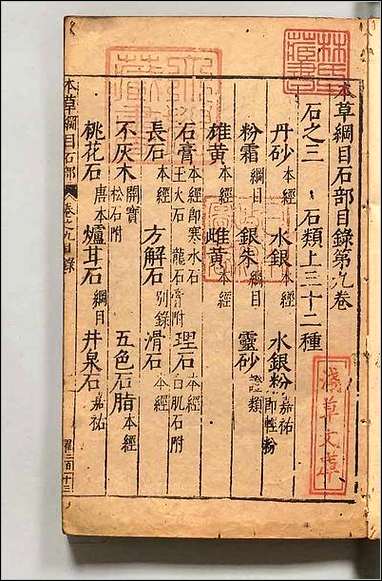 本草綱目石部目錄第九卷
石之三 石類上三十二種
丹砂 本經 水銀 本經 水銀粉 嘉祐 即輕粉
粉霜 綱目 銀朱 綱目 靈砂 證類
雄黃 本經 雌黃 本經
石膏 本經 玉火石 龍石膏附 理石 本經 白肌石附
長石 本經 即寒水石 方解石 別錄 滑石 本經
不灰木 開寶 松石附 五色石脂 本經
桃花石 唐本 爐甘石 綱目 井泉石 嘉祐
本草綱目石部 卷九目錄
林氏藏書
淺草文庫